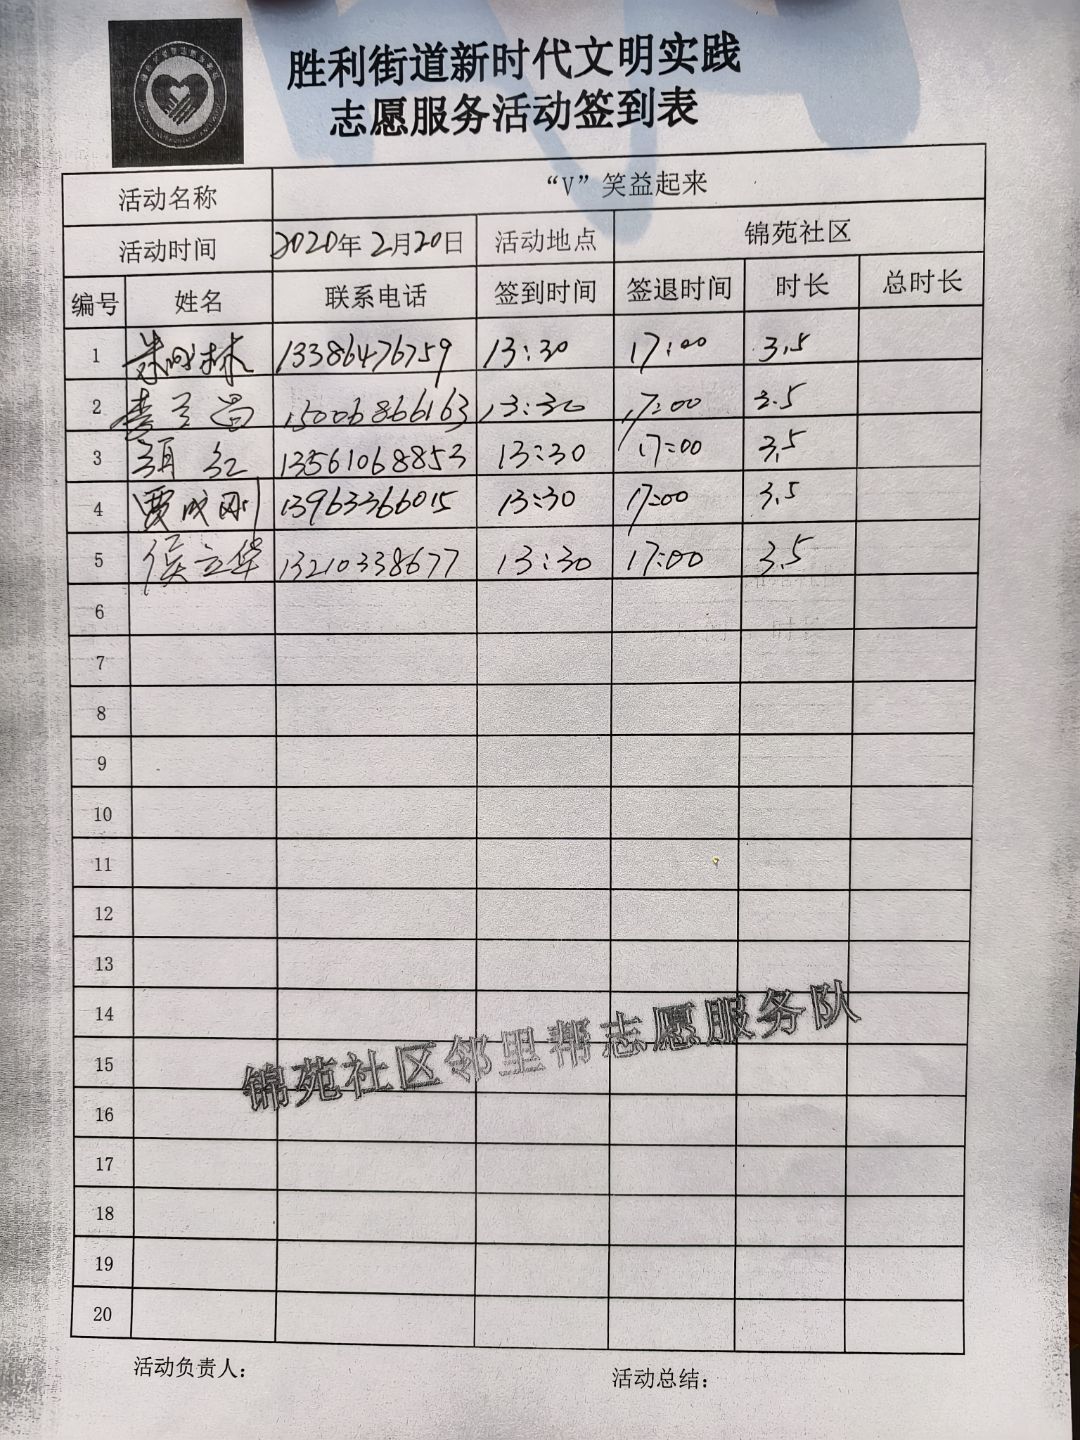 胜利街道新时代文明实践
志愿服务活动签到表
活动名称 “V”笑益起来
活动时间 2020年2月20日 活动地点 锦苑社区
编号 姓名 联系电话 签到时间 签退时间 时长 总时长
1 林 13386476759 13:30 17:00 3.5
2 15006866163 13:30 17:00 3.5
3 红 13561068853 13:30 17:00 3.5
4 贾成刚 13963366015 13:30 17:00 3.5
5 侯立华 13210338677 13:30 17:00 3.5
6
7
8
9
10
11
12
13
14
锦苑社区邻里帮志愿服务队
15
16
17
18
19
20
活动负责人: 活动总结: